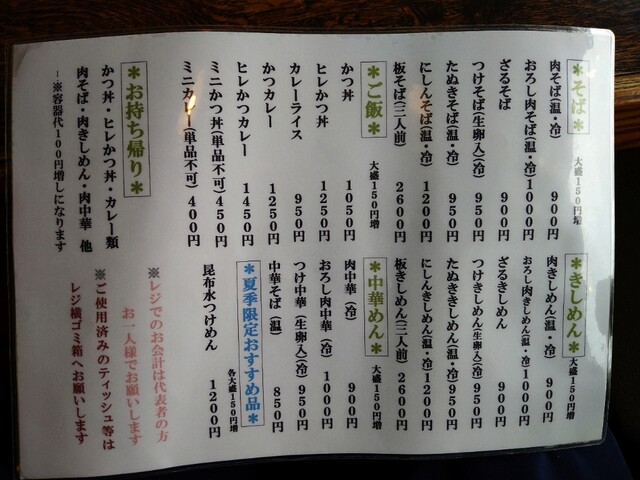 ＊そば＊ 大盛150円増
肉そば(温・冷) 900円
おろし肉そば(温・冷)1000円
ざるそば 900円
つけそば(生卵入)(冷) 950円
たぬきそば(温・冷) 950円
にしんそば(温・冷) 1200円
板そば(三人前) 2600円
＊ご飯＊ 大盛150円増
かつ丼 1050円
ヒレかつ丼 1250円
カレーライス 950円
かつカレー 1250円
ヒレかつカレー 1450円
ミニかつ丼(単品不可)450円
ミニカレー(単品不可)400円
＊お持ち帰り＊
かつ丼・ヒレかつ丼・カレー類
肉そば・肉きしめん・肉中華 他
※容器代100円増しになります
＊きしめん＊ 大盛150円増
肉きしめん(温・冷) 900円
おろし肉きしめん(温・冷)1000円
ざるきしめん 900円
つけきしめん(生卵入)(冷) 950円
たぬききしめん(温・冷)950円
にしんきしめん(温・冷)1200円
板きしめん(三人前)2600円
＊中華めん＊ 大盛150円増
肉中華(冷) 900円
おろし肉中華(冷) 1000円
つけ中華(生卵入)(冷) 950円
中華そば(温) 850円
＊夏季限定おすすめ品＊ 各大盛150円増
昆布水つけめん 1200円
※レジでのお会計は代表者の方
お一人様でお願いします
※ご使用済みのティッシュ等は
レジ横ゴミ箱へお願いします